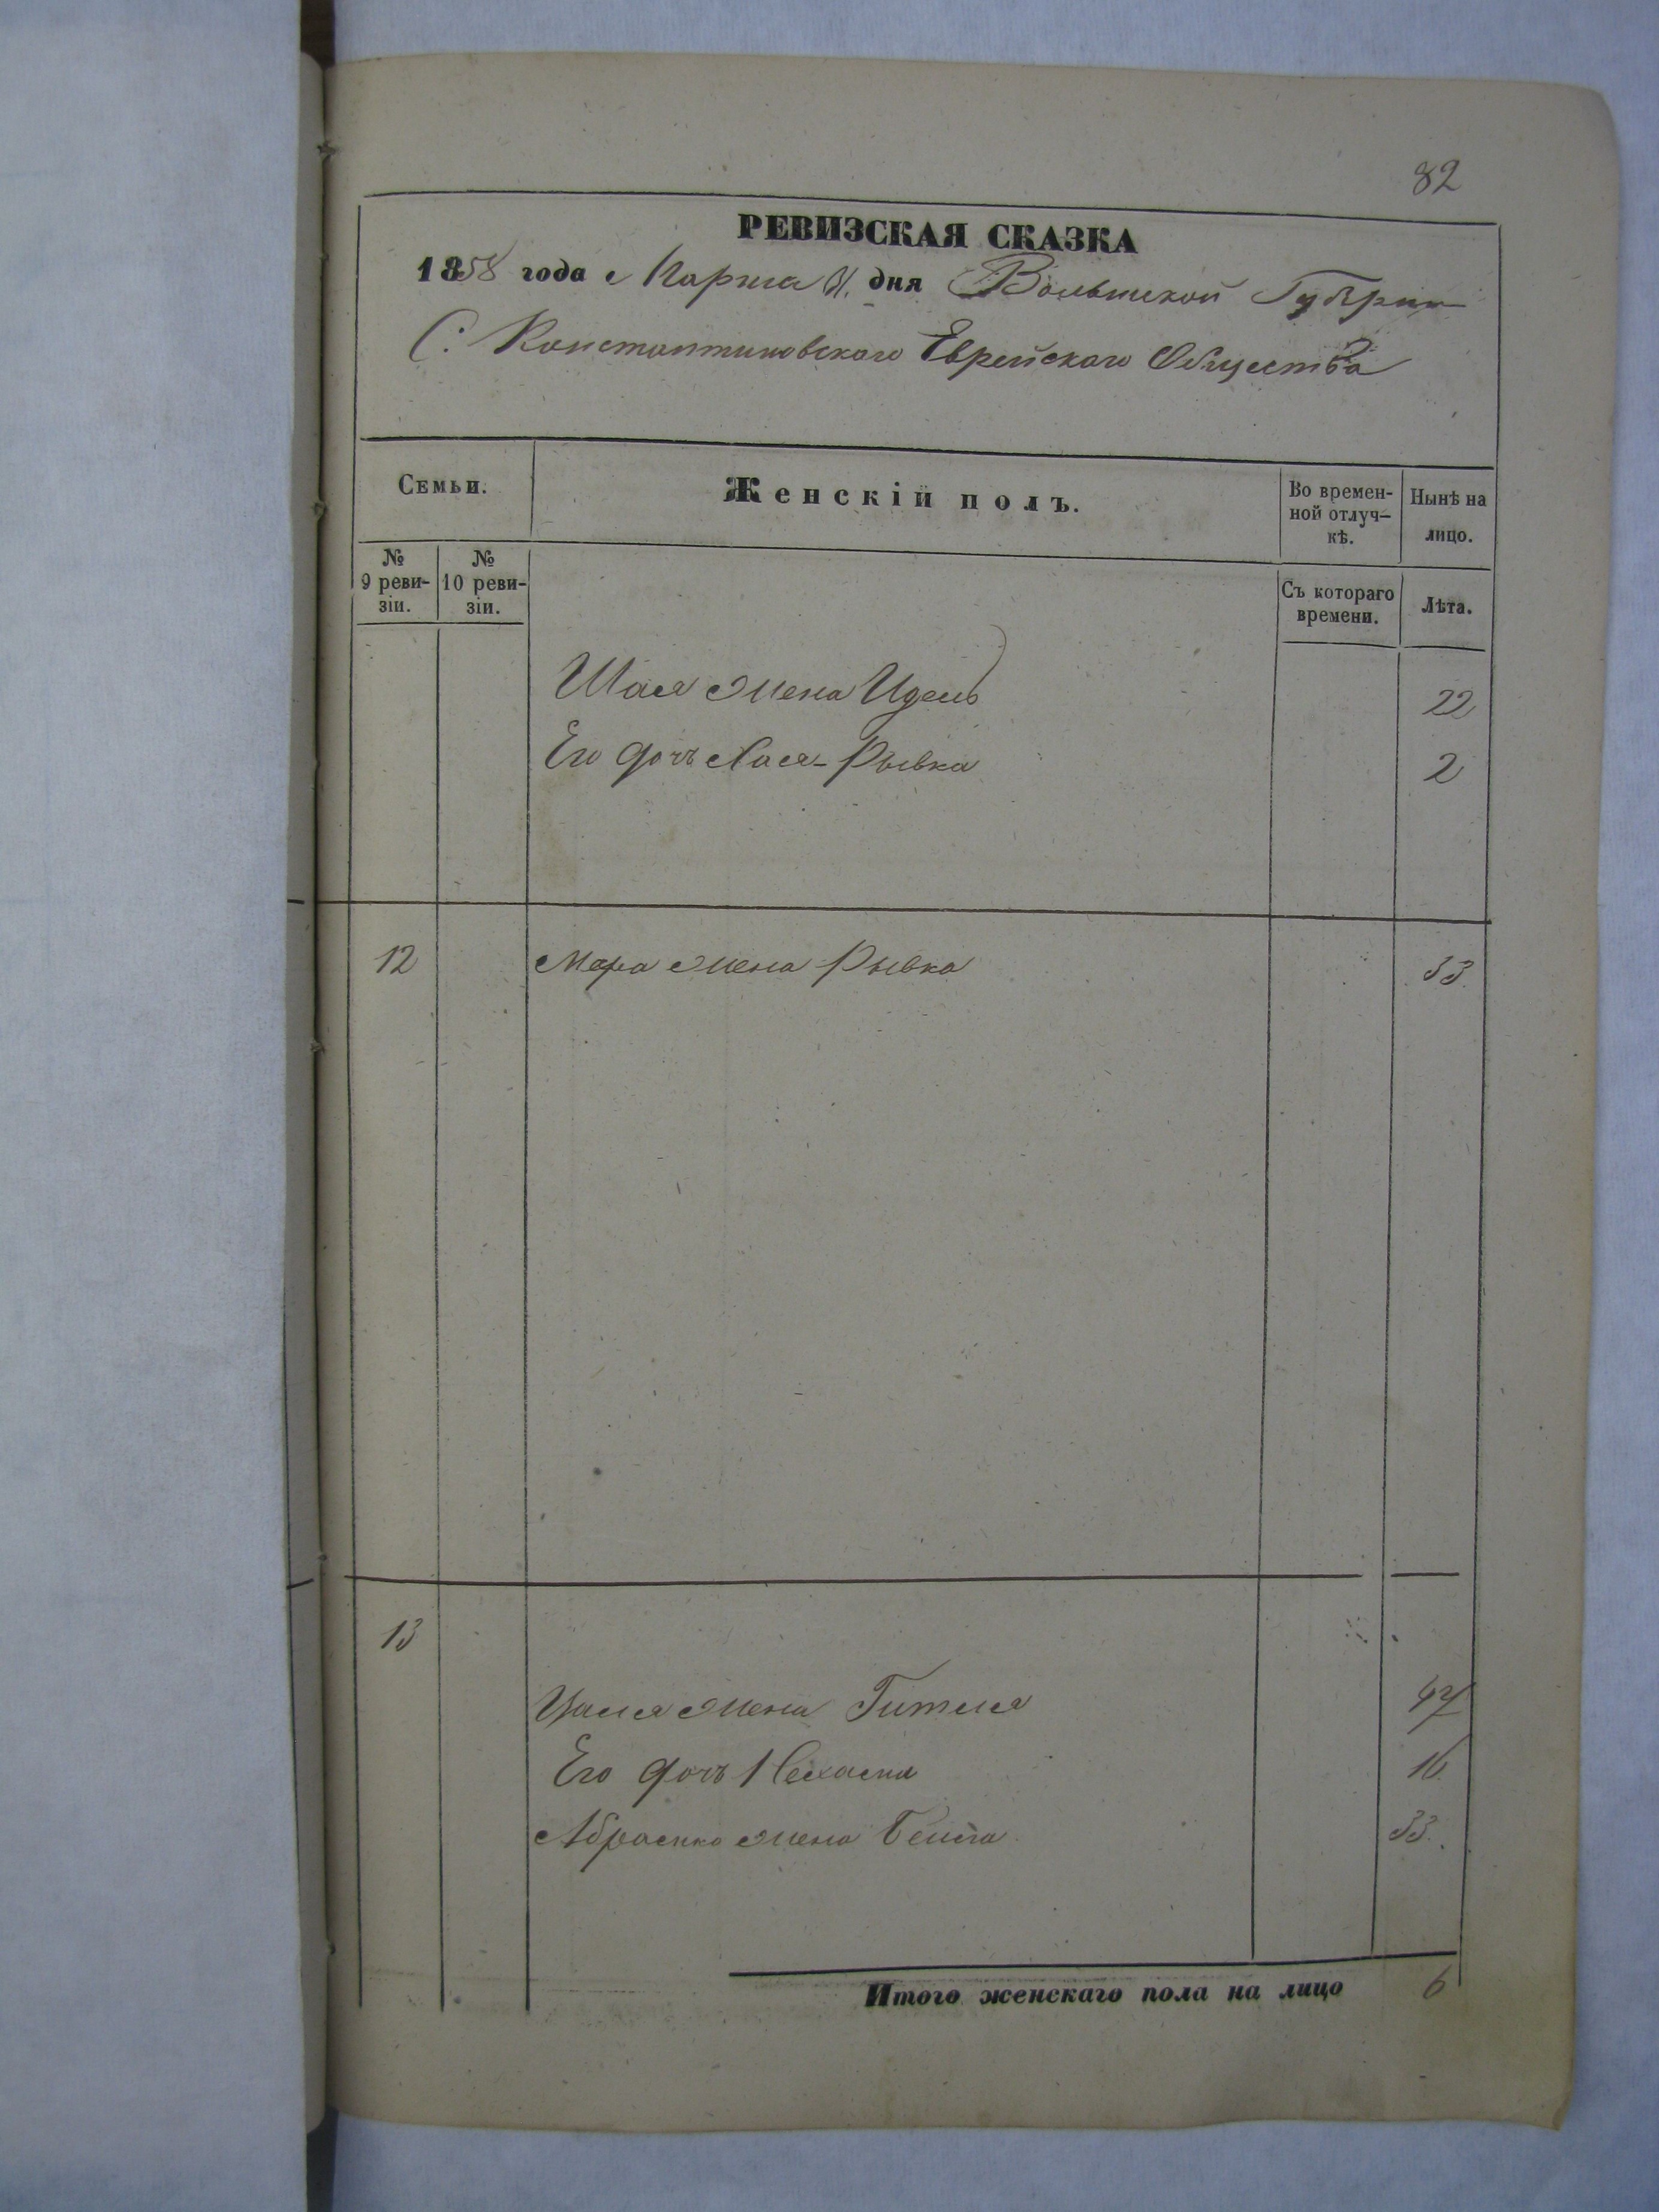 82
РЕВИЗСКАЯ СКАЗКА
1858 года Марта дня Волынской Губернии
С. Константиновского Еврейскаго Общества
Семьи.
Женскій полъ.
Во времен-
ной отлуч-
кѣ.
Нынѣ на
лицо.
№
9 реви-
зіи.
№
10 реви-
зіи.
Съ котораго
времени.
Лѣта.
жена 22
Его дочь Хася-Рывка 2
12 жена Рывка 33
13
жена Гитля 47
Его дочь 16
Абрамка жена 33.
Итого женскаго пола на лицо 6